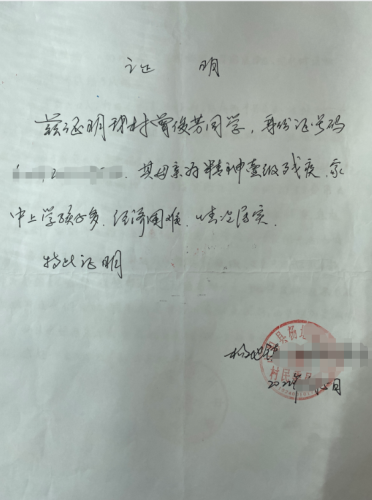 证 明
兹证明我村曾俊芳同学，身份证号码
其母亲为精神壹级残疾，家
中上学孩子多，经济困难，情况属实，
特此证明
县杨
村民委员
2022年 月